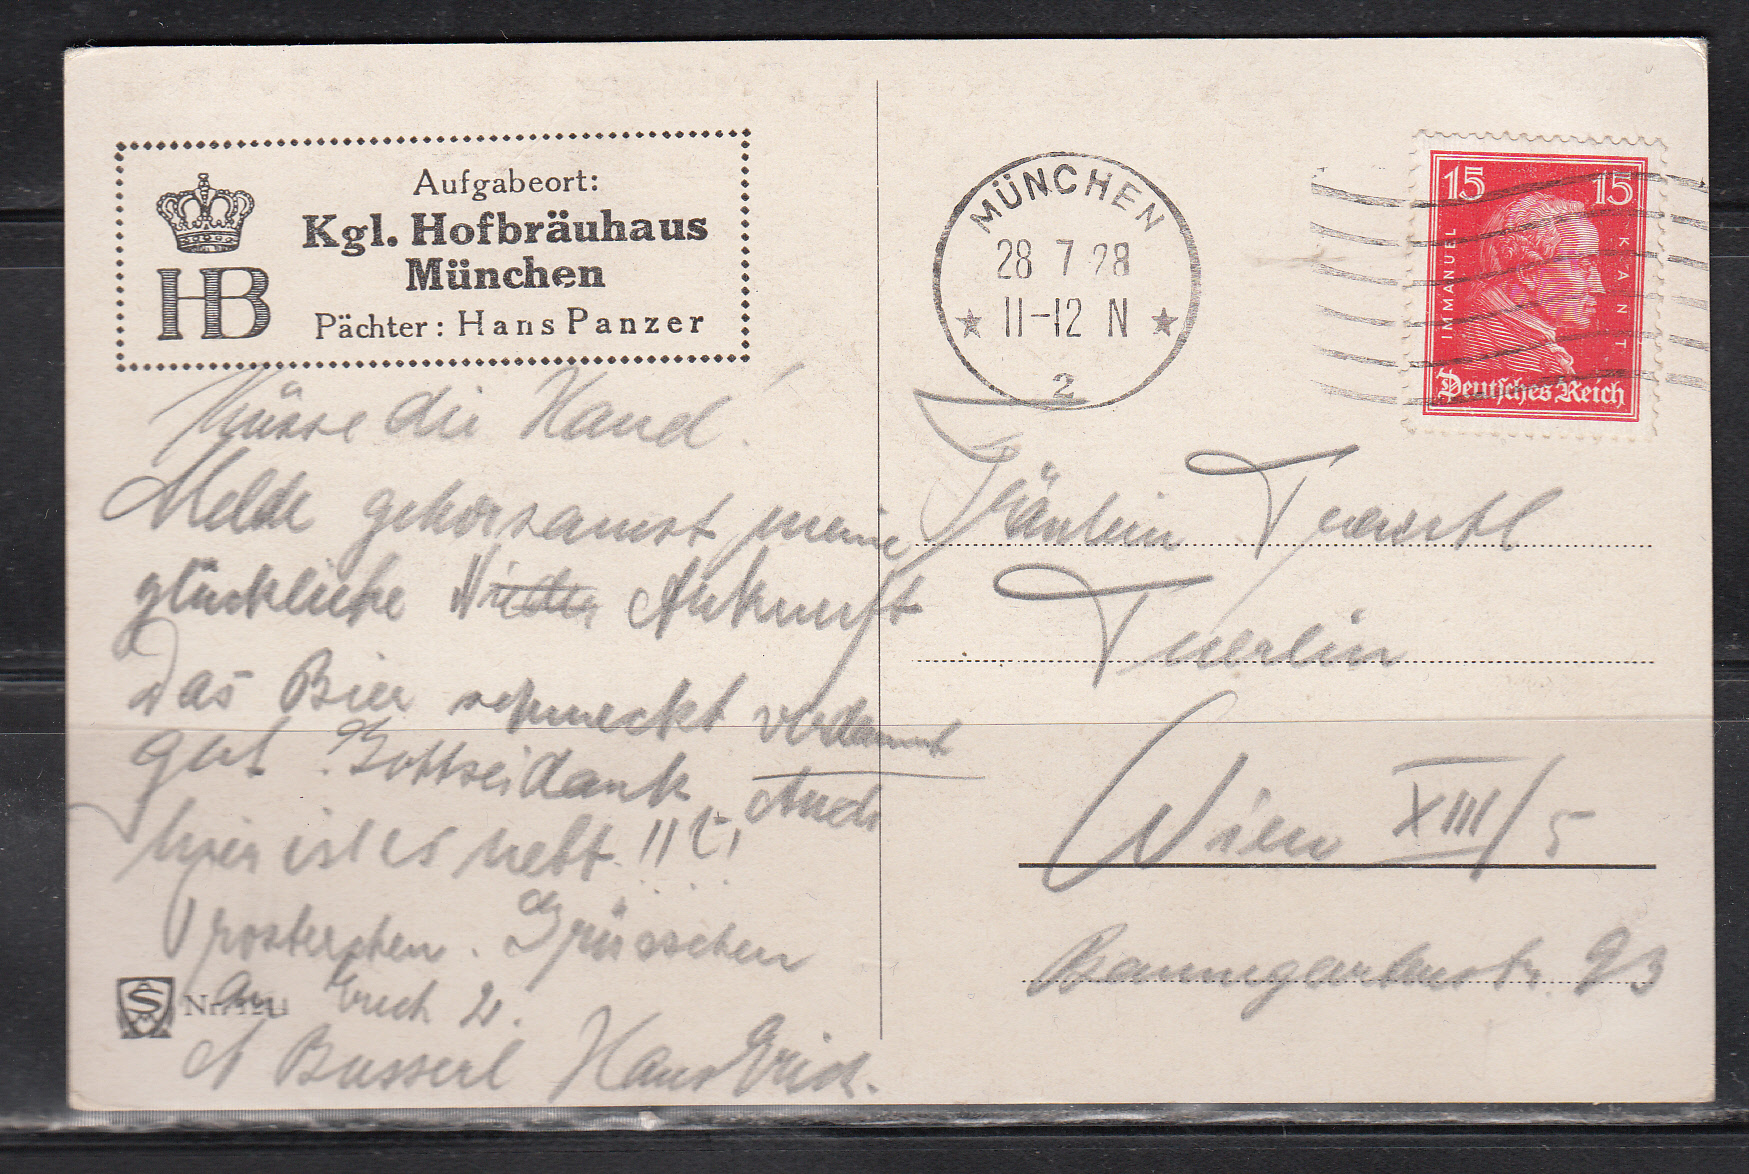 Aufgabeort:
Kgl. Hofbräuhaus
München
Pächter: Hans Panzer
HB
Küsse die Hand!
Melde gehorsamst meine
glückliche Ankunft
Das Bier schmeckt verdammt
gut Gottseidank, Auch
hier ist es nett!!
Prosterchen. Grüsschen
an Euch 2.
A Busserl Hans Erich.
Nr.
MÜNCHEN
28 7 28
11-12 N
2
15 15
IMMANUEL KANT
Deutsches Reich
Fräulein
Tuerlin
Wien XIII/5
Baumgartenstr. 93